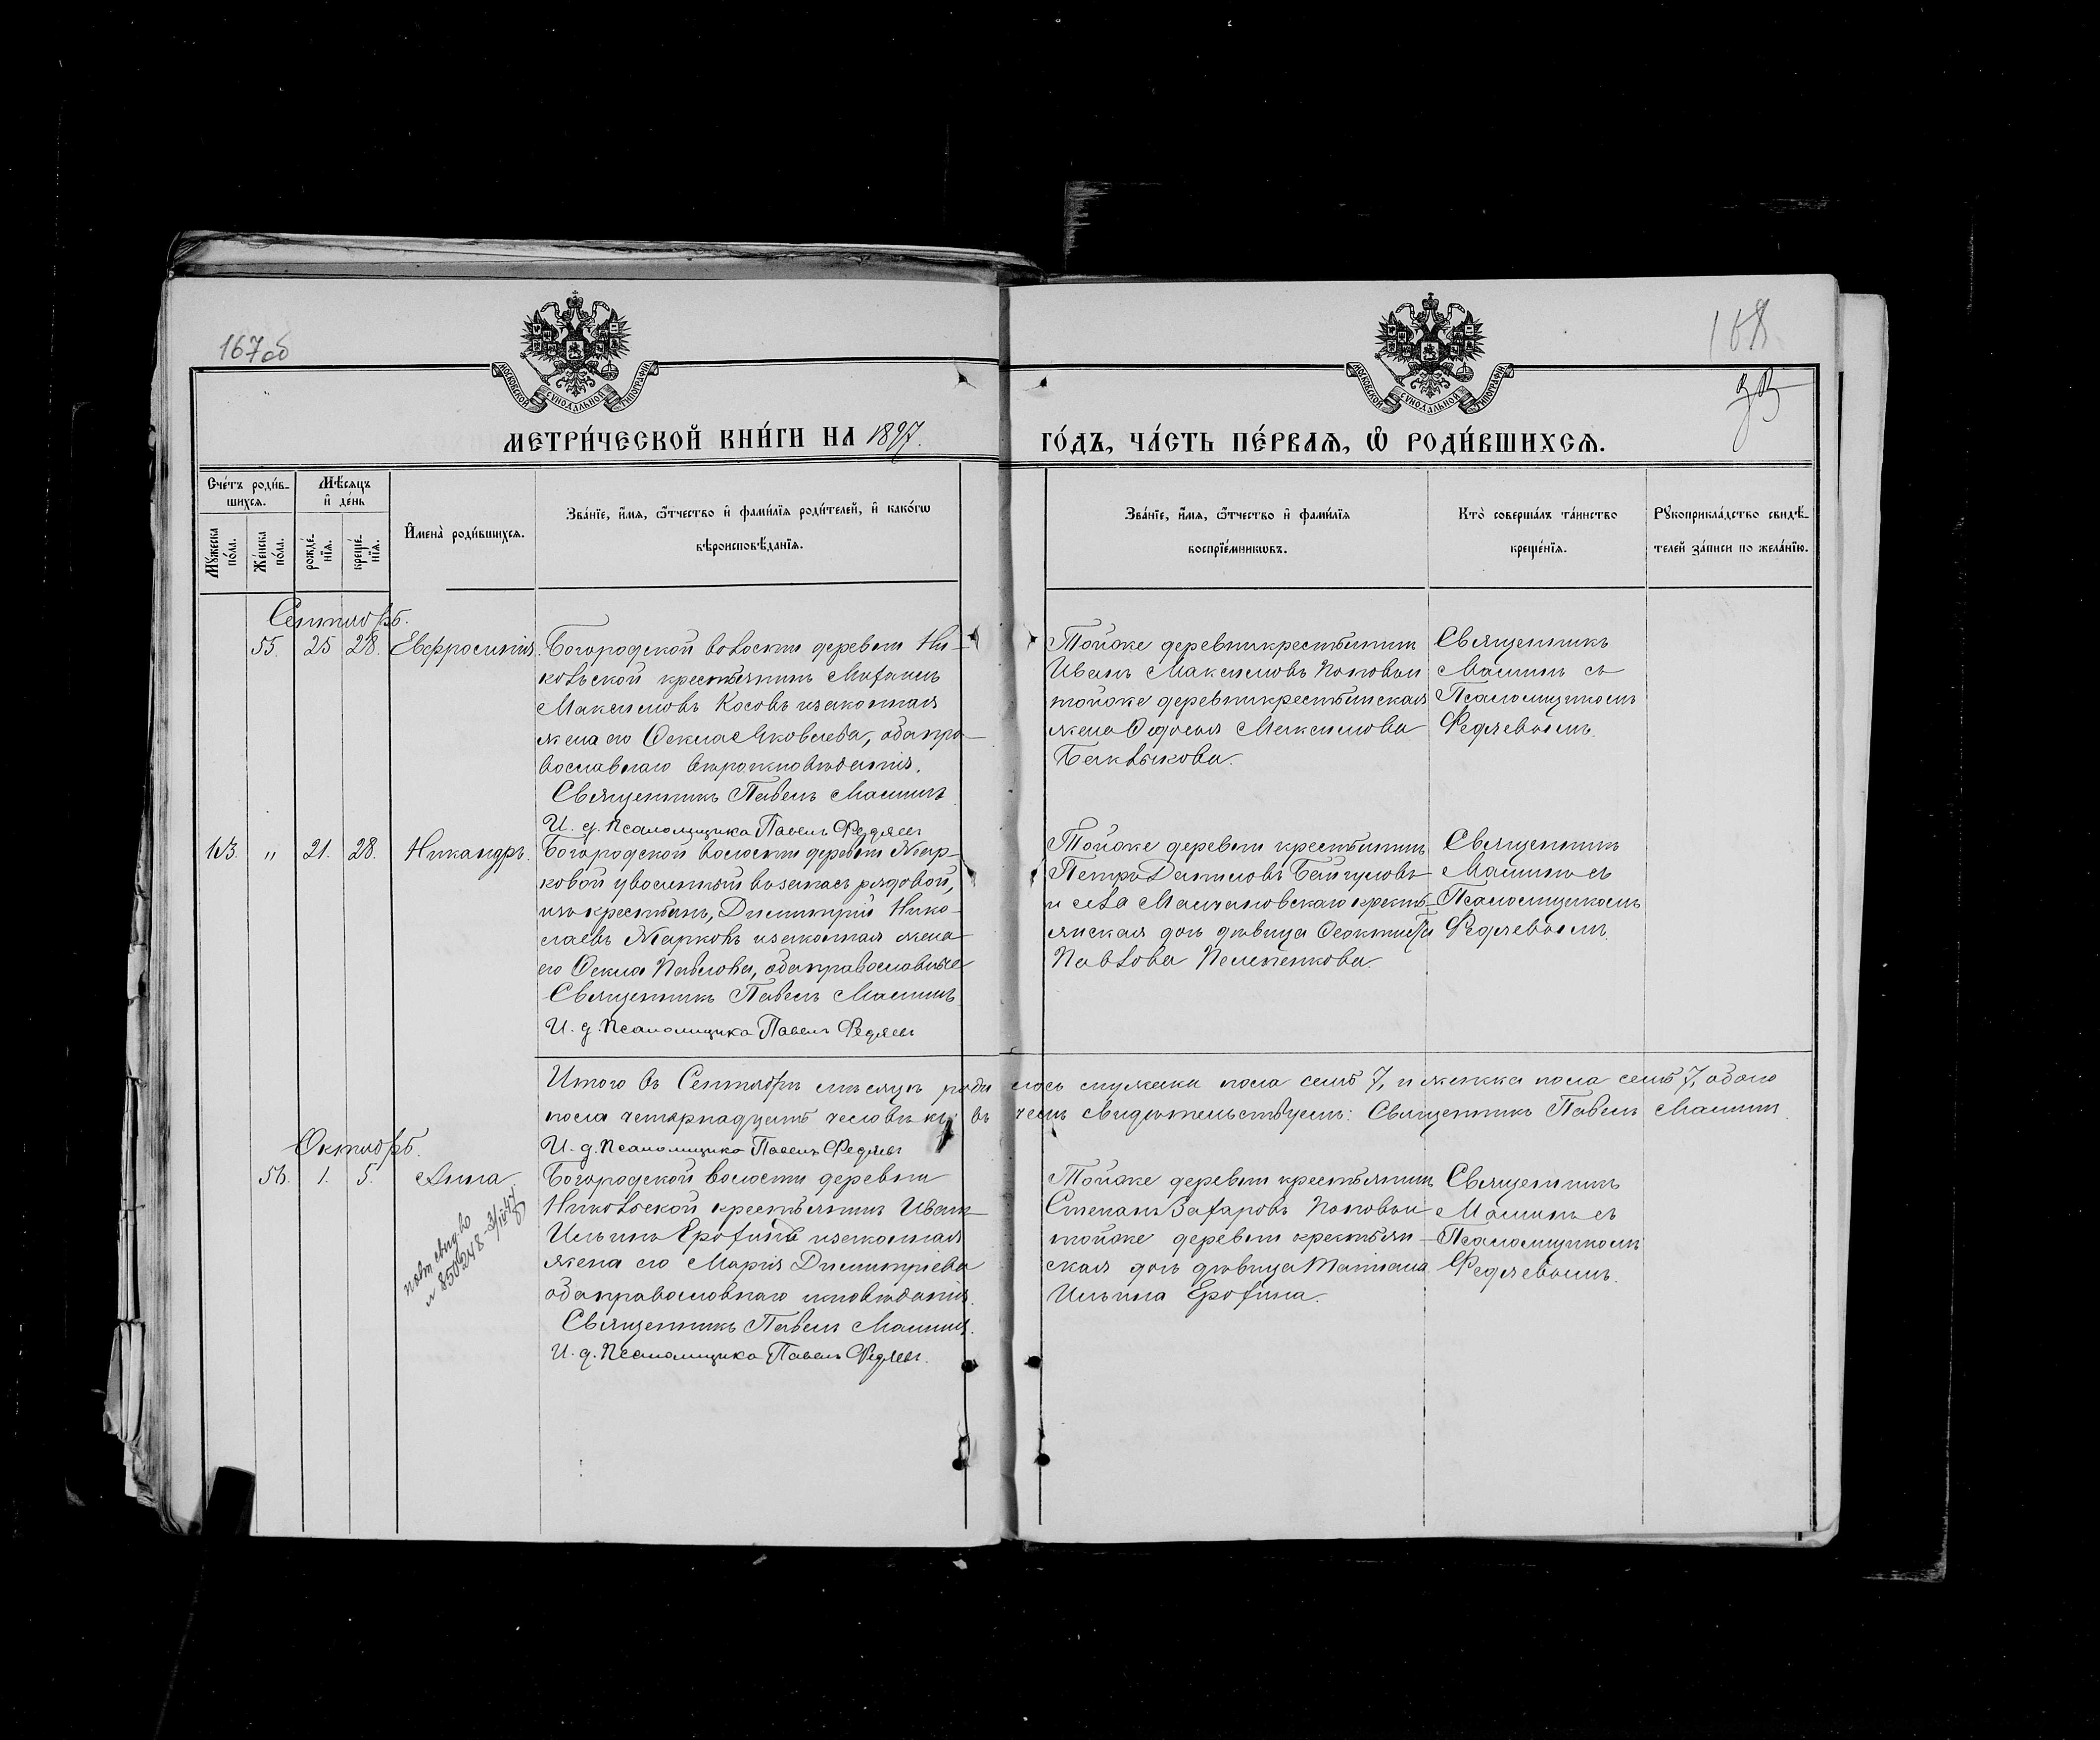 167об
168
МОСКОВСКОЙ СУНОДАЛЬНОЙ ТУПОГРАФІИ
МОСКОВСКОЙ СУНОДАЛЬНОЙ ТУПОГРАФІИ
МЕТРИ́ЧЕСКОЙ КНИ́ГИ НА 1897.
ГО́ДЪ, ЧА́СТЬ ПЕ́РВАѦ, Ѡ҆ РОДИ́ВШИХСѦ.
Сче́тъ роди́в-
шихсѧ.
Мѣ́сѧцъ
и҆ де́нь
Мꙋ́жеска
по́ла.
Же́нска
по́ла.
рожде́-
нїѧ.
креще́-
нїѧ.
И҆мена̀ роди́вшихсѧ.
Зва́нїе, и҆́мѧ, ѻ҆́тчество и҆ фами́лїѧ роди́телей, и҆ како́гѡ
вѣроисповѣ́данїѧ.
Зва́нїе, и҆́мѧ, ѻ҆́тчество и҆ фами́лїѧ
воспрїе́мникѡвъ.
Кто̀ соверша́лъ та́инство
креще́нїѧ.
Рꙋкоприкла́дство свидѣ́-
телей за́писи по жела́нїю.
Сентябрь.
55. 25 28. Евфросинія.
Богородской волости деревни Ни-
кольской крестьянинъ Михаилъ
Максимовъ Косовъ и законная
жена его Ѳекла Яковлева, оба пра-
вославнаго вѣроисповѣданія.
Священникъ Павелъ Машинъ
И. д. Псаломщика Павелъ Федяевъ
Тойже деревни крестьянинъ
Иванъ Максимовъ Поповъ и
тойже деревни крестьянская
жена Ѳедосья Максимова
Баклыкова.
Священникъ
Машинъ съ
Псаломщикомъ
Федяевымъ.
" 21. 28. Никандръ.
Богородской волости деревни Жар-
ковой уволенный въ запасъ рядовой,
изъ крестьянъ, Димитрій Нико-
лаевъ Жарковъ и законная жена
его Ѳекла Павлова, оба православные
Священникъ Павелъ Машинъ
И. д. Псаломщика Павелъ Федяевъ
Тойже деревни крестьянинъ
Петръ Даниловъ Байгуловъ
и села Манчажовскаго кресть-
янская дочь дѣвица Ѳеоктиста
Павлова
Священникъ
Машинъ съ
Псаломщикомъ
Федяевымъ.
Итого въ Сентябрѣ мѣсяцѣ родилось мужска пола семь 7, и женска пола семь 7, обоего
пола четырнадцать человѣкъ; въ чемъ свидѣтельствуемъ: Священникъ Павелъ Машинъ.
И. д. Псаломщика Павелъ Федяевъ
Октябрь.
56. 1. 5. Анна.
Богородской волости деревни
Никольской крестьянинъ Иванъ
Ильинъ Ерофинъ и законная
жена его Марія Димитріева
оба православнаго исповѣданія.
Священникъ Павелъ Машинъ.
И. д. Псаломщика Павелъ Федяевъ.
Тойже деревни крестьянинъ
Степанъ Захаровъ Поповъ и
тойже деревни крестьян-
ская дочь дѣвица Татіана
Ильина Ерофина.
Священникъ
Машинъ съ
Псаломщикомъ
Федяевымъ.